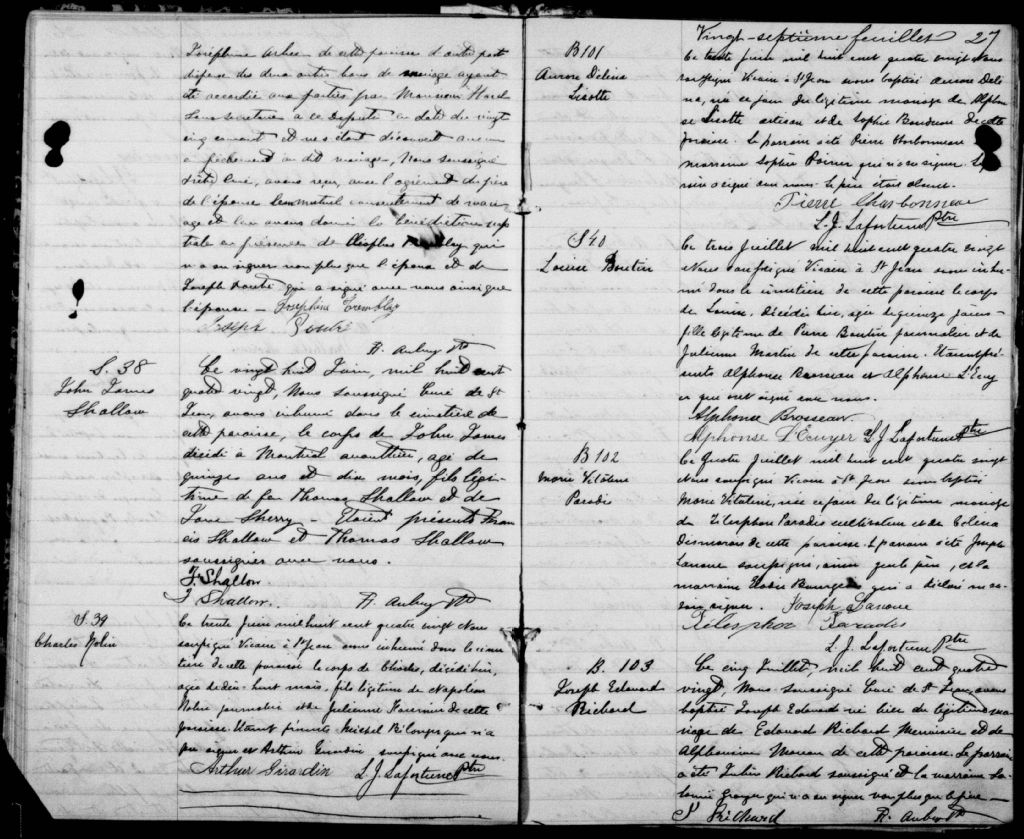 Joséphine Arbec de cette paroisse d'autre part
dispense des deux autres bans de mariage ayant
été accordée aux parties par Monsieur Hard
sous-secrétaire à ce député en date du vingt
cinq courant et ne s'étant découvert aucun
empêchement au dit mariage, Nous soussigné
prêtre curé, avons reçu, avec l'agrément du père
de l'épouse leur mutuel consentement de mari
age et leur avons donné la bénédiction nup
tiale en présence de Cléophas Tremblay qui
n'a su signer non plus que l'époux et de
Joseph qui a signé avec nous ainsi que
l'épouse — Joséphine Tremblay
Joseph
A. Aubry Ptr
S. 38
John James
Shallow
Ce vingt huit Juin, mil huit cent
quatre vingt, Nous soussigné Curé de St
Jean, avons inhumé dans le cimetière de
cette paroisse, le corps de John James
décédé à Montréal avant hier, agé de
quinze ans et dix mois, fils légi-
time de feu Thomas Shallow et de
Jane Sherry — Etaient présents Fran
cis Shallow et Thomas Shallow
soussignés avec nous.
F. Shallow
T Shallow. A. Aubry Ptr
S. 39
Charles Nolin
Ce trente Juin mil huit cent quatre vingt Nous
soussigné Vicaire à St Jean avons inhumé dans le cime
tière de cette paroisse le corps de Charles, décédé hier,
agé de dix-huit mois, fils légitime de Napoléon
Nolin journalier et de Julienne Fournier de cette
paroisse. Etaient présents Michel Bélanger qui n'a
pu signer et Arthur Girardin soussigné avec nous.
Arthur Girardin L. J. Lafortune Ptre
Vingt-septième feuillet 27
B 101
Aurore Délina
Lisotte
Ce trente Juin mil huit cent quatre vingt Nous
soussigné Vicaire à St Jean avons baptisé Aurore Déli
na, née ce jour du légitime mariage de Alphon
se Lisotte artisan et de Sophie Boudreau de cette
paroisse. Le parrain a été Pierre Charbonneau
marraine Sophie Poirier qui n'a su signer. Le par
rain a signé avec nous. le père étais absent.
Pierre Charbonneau
L. J. Lafortune Ptre
S 40
Louise Boutin
Ce trois Juillet mil huit cent quatre vingt
Nous soussigné Vicaire à St Jean avons inhu
mé dans le cimetière de cette paroisse le corps
de Louise, décédée hier, agée de quinze jours
fille légitime de Pierre Boutin journalier et de
Julienne Martin de cette paroisse. Etaient pré
sents Alphonse Brosseau et Alphonse L'Ecuy
er qui ont signé avec nous.
Alphonse Brosseau
Alphonse L'Ecuyer L. J. Lafortune Ptre
B 102
Marie Vitaline
Paradis
Ce Quatre Juillet mil huit cent quatre vingt
Nous soussigné Vicaire à St Jean avons baptisé
Marie Vitaline, née ce jour du légitime mariage
de Télesphore Paradis cultivateur et de Coléna
Desmarais de cette paroisse. Le parrain a été Joseph
Lanoue soussigné, ainsi que le père, et la
marraine Elodie Bourgeois qui a déclaré ne sa
voir signer. Joseph Lanoue
Télesphor Paradis
L. J. Lafortune Ptre
B. 103
Joseph Edouard
Richard
Ce cinq Juillet, mil huit cent quatre
vingt, Nous soussigné Curé de St Jean, avons
baptisé Joseph Edouard né hier du légitime ma
riage de Edouard Richard Menuisier et de
Alphonsine Moreau de cette paroisse. Le parrain
a été Julien Richard soussigné et la marraine
Granger qui n'a su signer non plus que le père —
J Richard A. Aubry Ptr